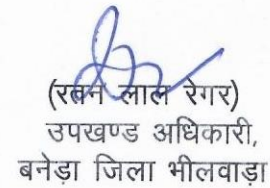 (रतन लाल रेगर)
उपखण्ड अधिकारी,
बनेडा जिला भीलवाडा